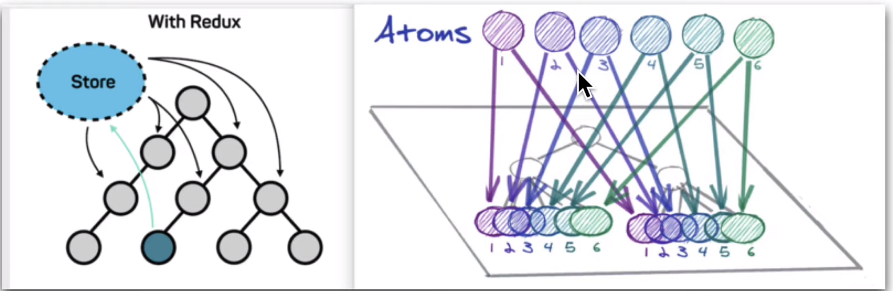 With Redux
Store
Atoms
1 2 3 4 5 6
1 2 3 4 5 6
1 2 3 4 5 6